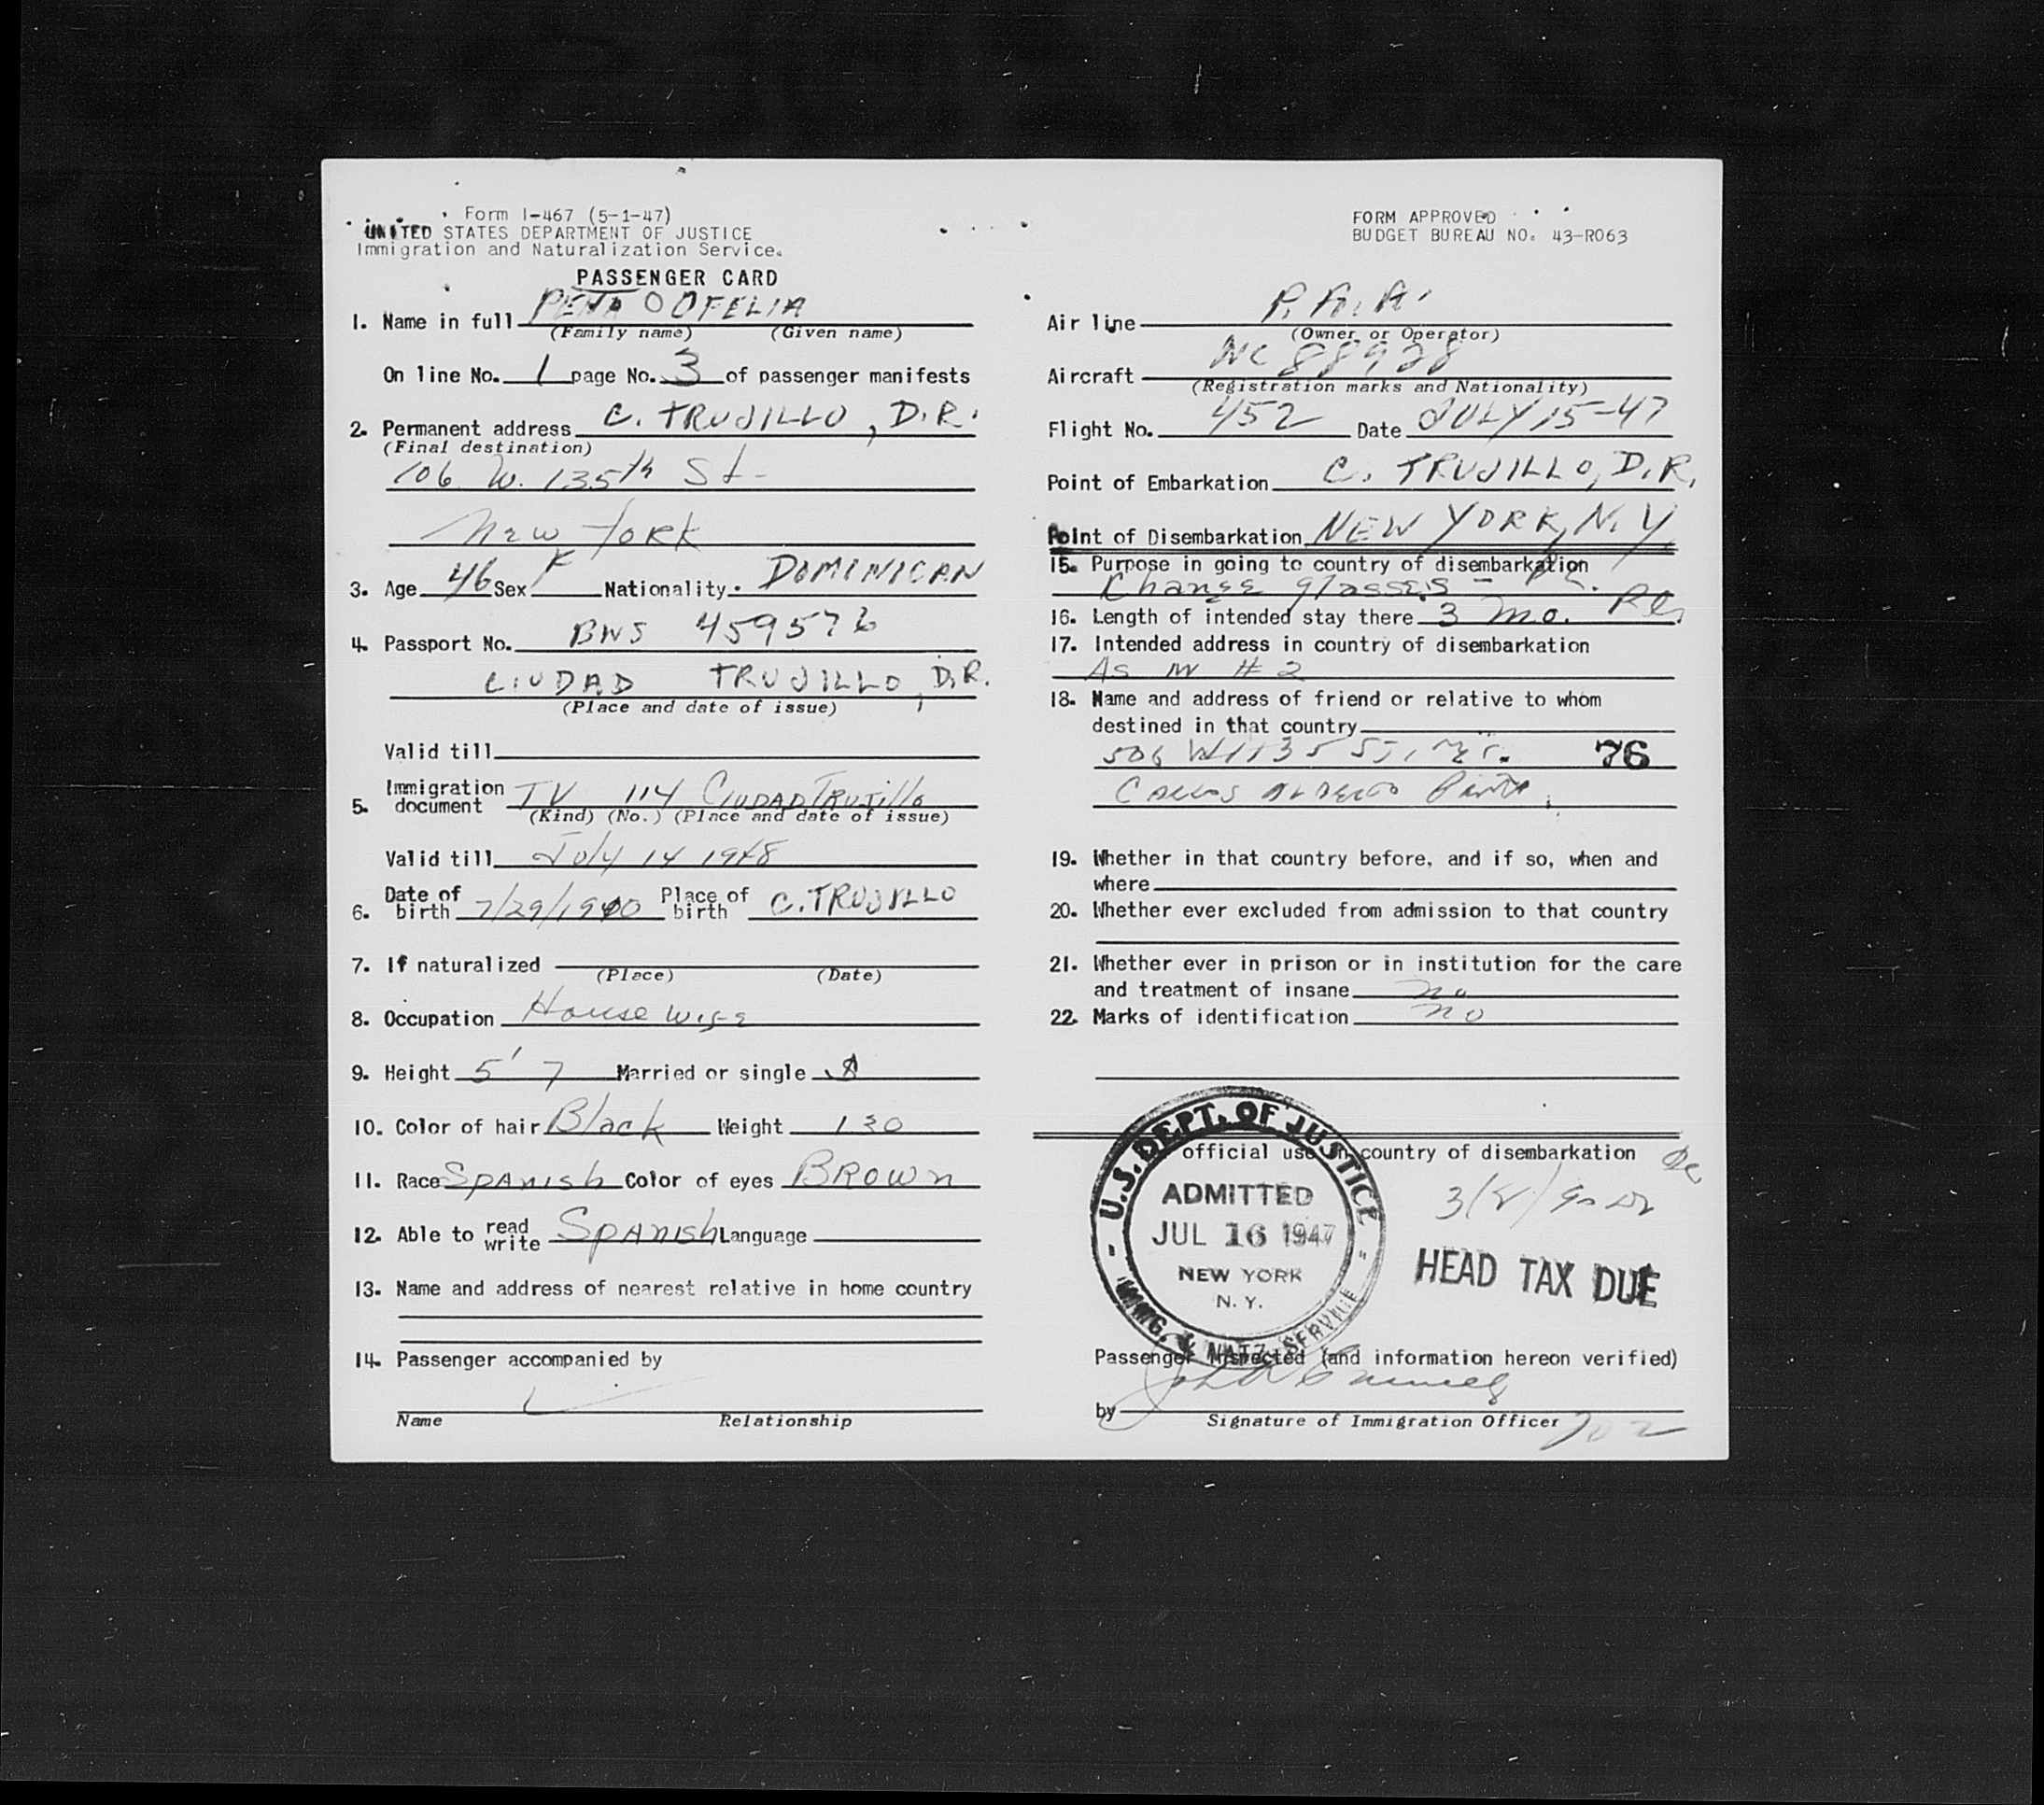 Form I-467 (5-1-47)
UNITED STATES DEPARTMENT OF JUSTICE
Immigration and Naturalization Service.
PASSENGER CARD
1. Name in full PENA O OFELIA
(Family name) (Given name)
On line No. 1 page No. 3 of passenger manifests
2. Permanent address C. TRUJILLO, D.R.
(Final destination)
106 W. 135th St-
New York
3. Age 46 Sex F Nationality. DOMINICAN
4. Passport No. BNS 459576
CIUDAD TRUJILLO, D.R.
(Place and date of issue)
Valid till
5. Immigration document TV 114 Ciudad Trujillo
(Kind) (No.) (Place and date of issue)
Valid till July 14 1948
6. Date of birth 7/29/1900 Place of birth C. TRUJILLO
7. If naturalized
(Place) (Date)
8. Occupation House wife
9. Height 5' 7 Married or single S
10. Color of hair Black Weight 130
11. Race Spanish Color of eyes BROWN
12. Able to read write Spanish Language
13. Name and address of nearest relative in home country
14. Passenger accompanied by
Name Relationship
FORM APPROVED
BUDGET BUREAU NO. 43-R063
Air line P.A.A.
(Owner or Operator)
Aircraft NC 88928
(Registration marks and Nationality)
Flight No. 452 Date JULY 15-47
Point of Embarkation C. TRUJILLO, D.R.
Point of Disembarkation NEW YORK, N.Y.
15. Purpose in going to country of disembarkation
Change glasses -
16. Length of intended stay there 3 mo.
17. Intended address in country of disembarkation
As in # 2
18. Name and address of friend or relative to whom
destined in that country
506 W 135 St 76
Carlos Alberto
19. Whether in that country before, and if so, when and
where
20. Whether ever excluded from admission to that country
21. Whether ever in prison or in institution for the care
and treatment of insane no
22. Marks of identification no
official use in country of disembarkation
U.S. DEPT. OF JUSTICE
ADMITTED
JUL 16 1947
NEW YORK
N. Y.
IMMG. & NATZ. SERVICE
HEAD TAX DUE
Passenger inspected (and information hereon verified)
by
Signature of Immigration Officer 702